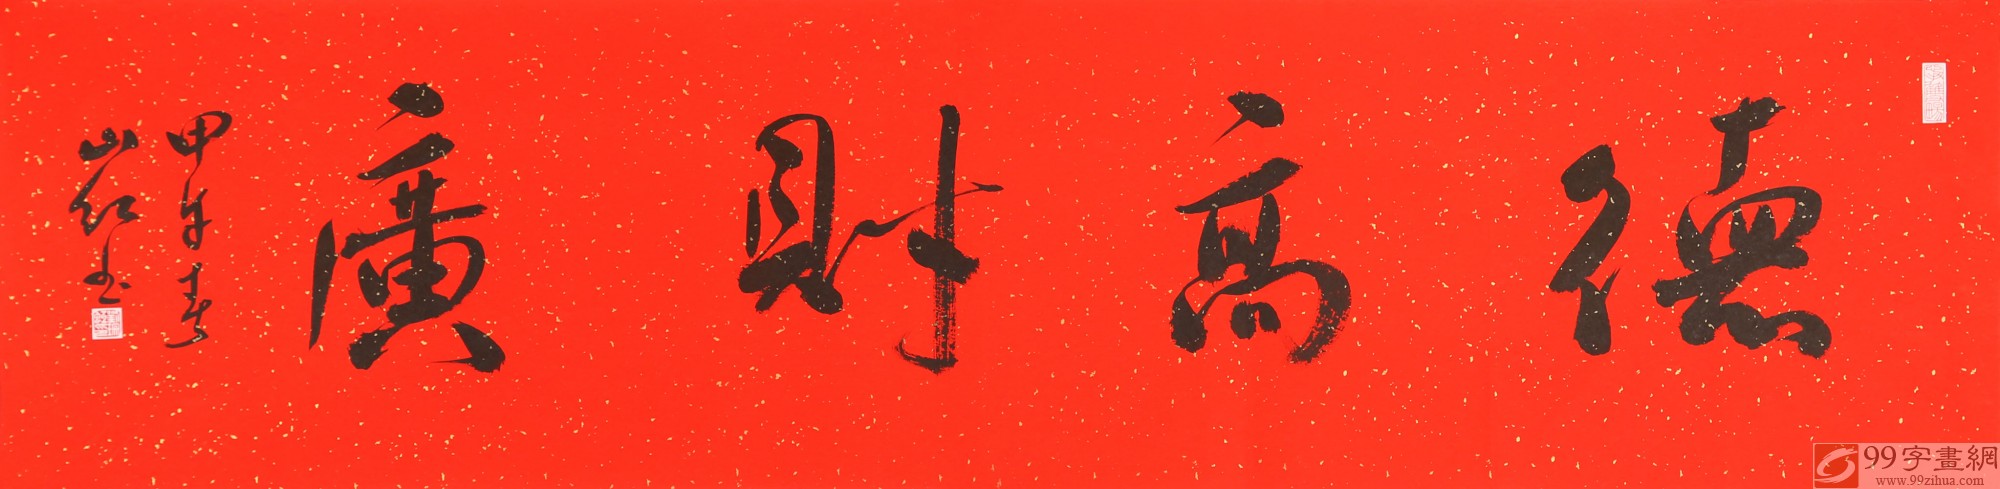 德高財廣
甲午春
山红书
99字畫網
www.99zihua.com